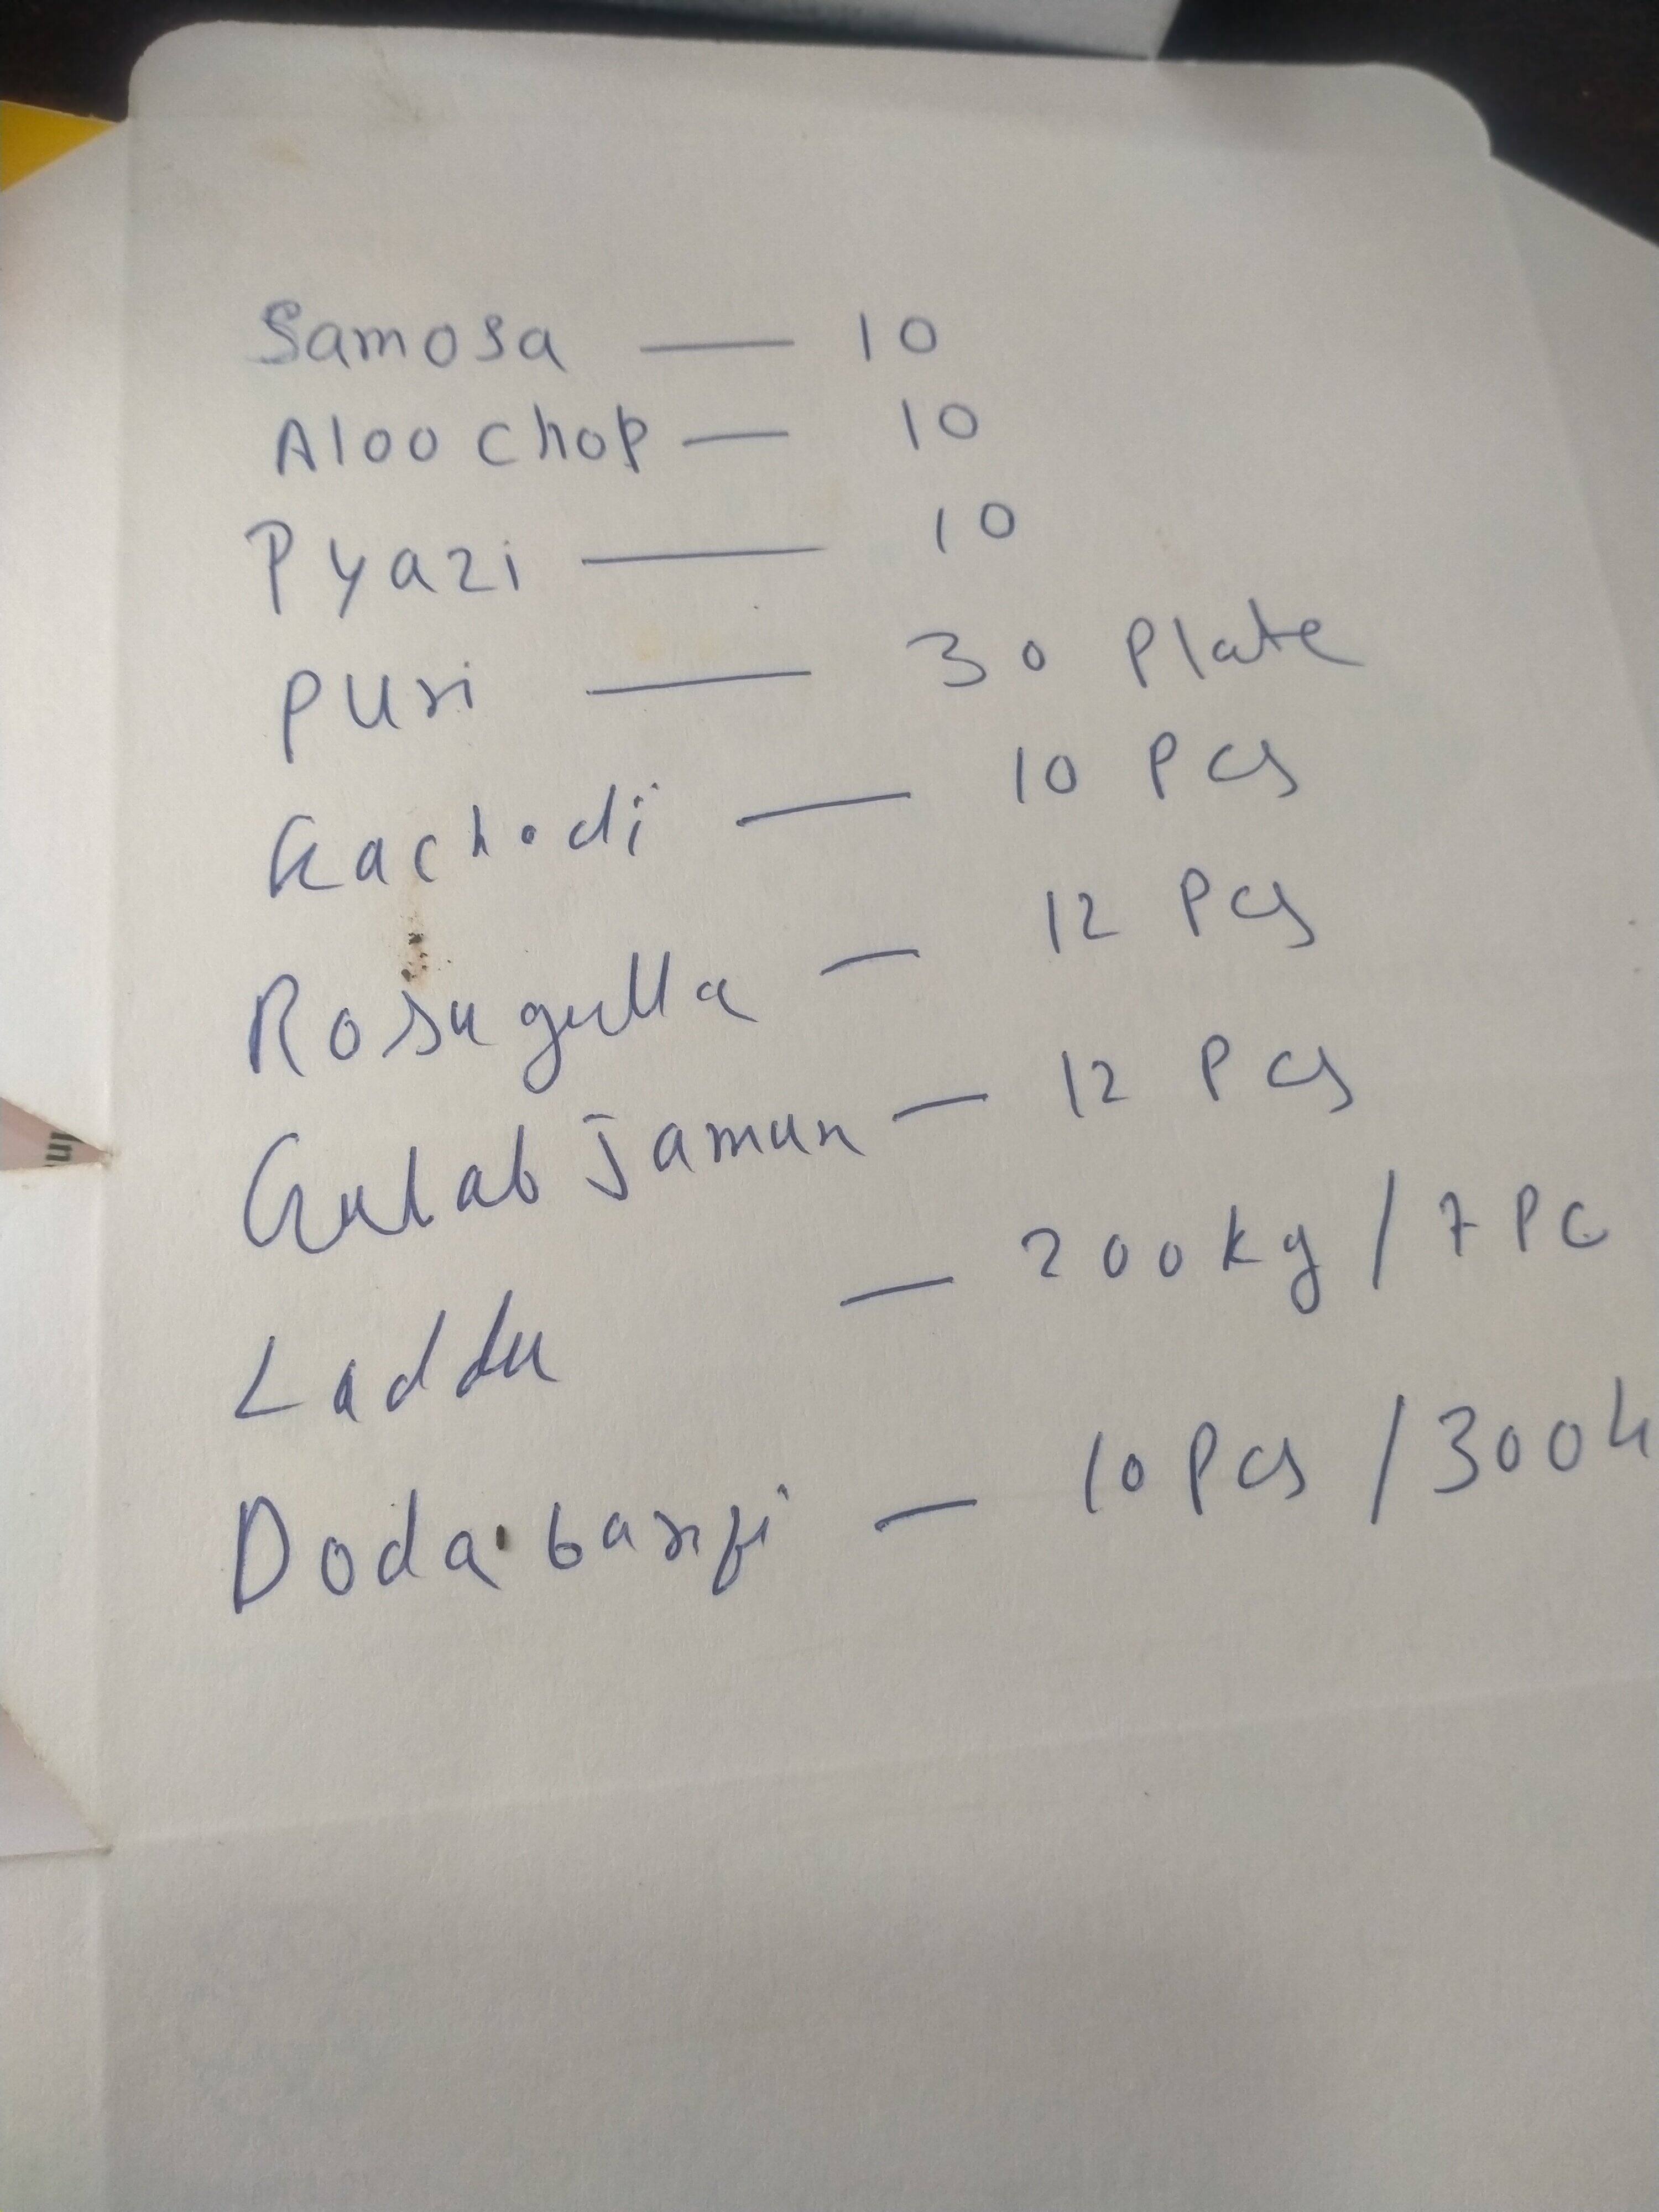 Samosa — 10
Aloo chop — 10
Pyazi — 10
Puri — 30 Plate
Kachodi — 10 Pcs
Rosugulla — 12 Pcs
Gulab Jamun — 12 Pcs
Laddu — 200kg / 7 PC
Doda barfi — 10 Pcs / 300k